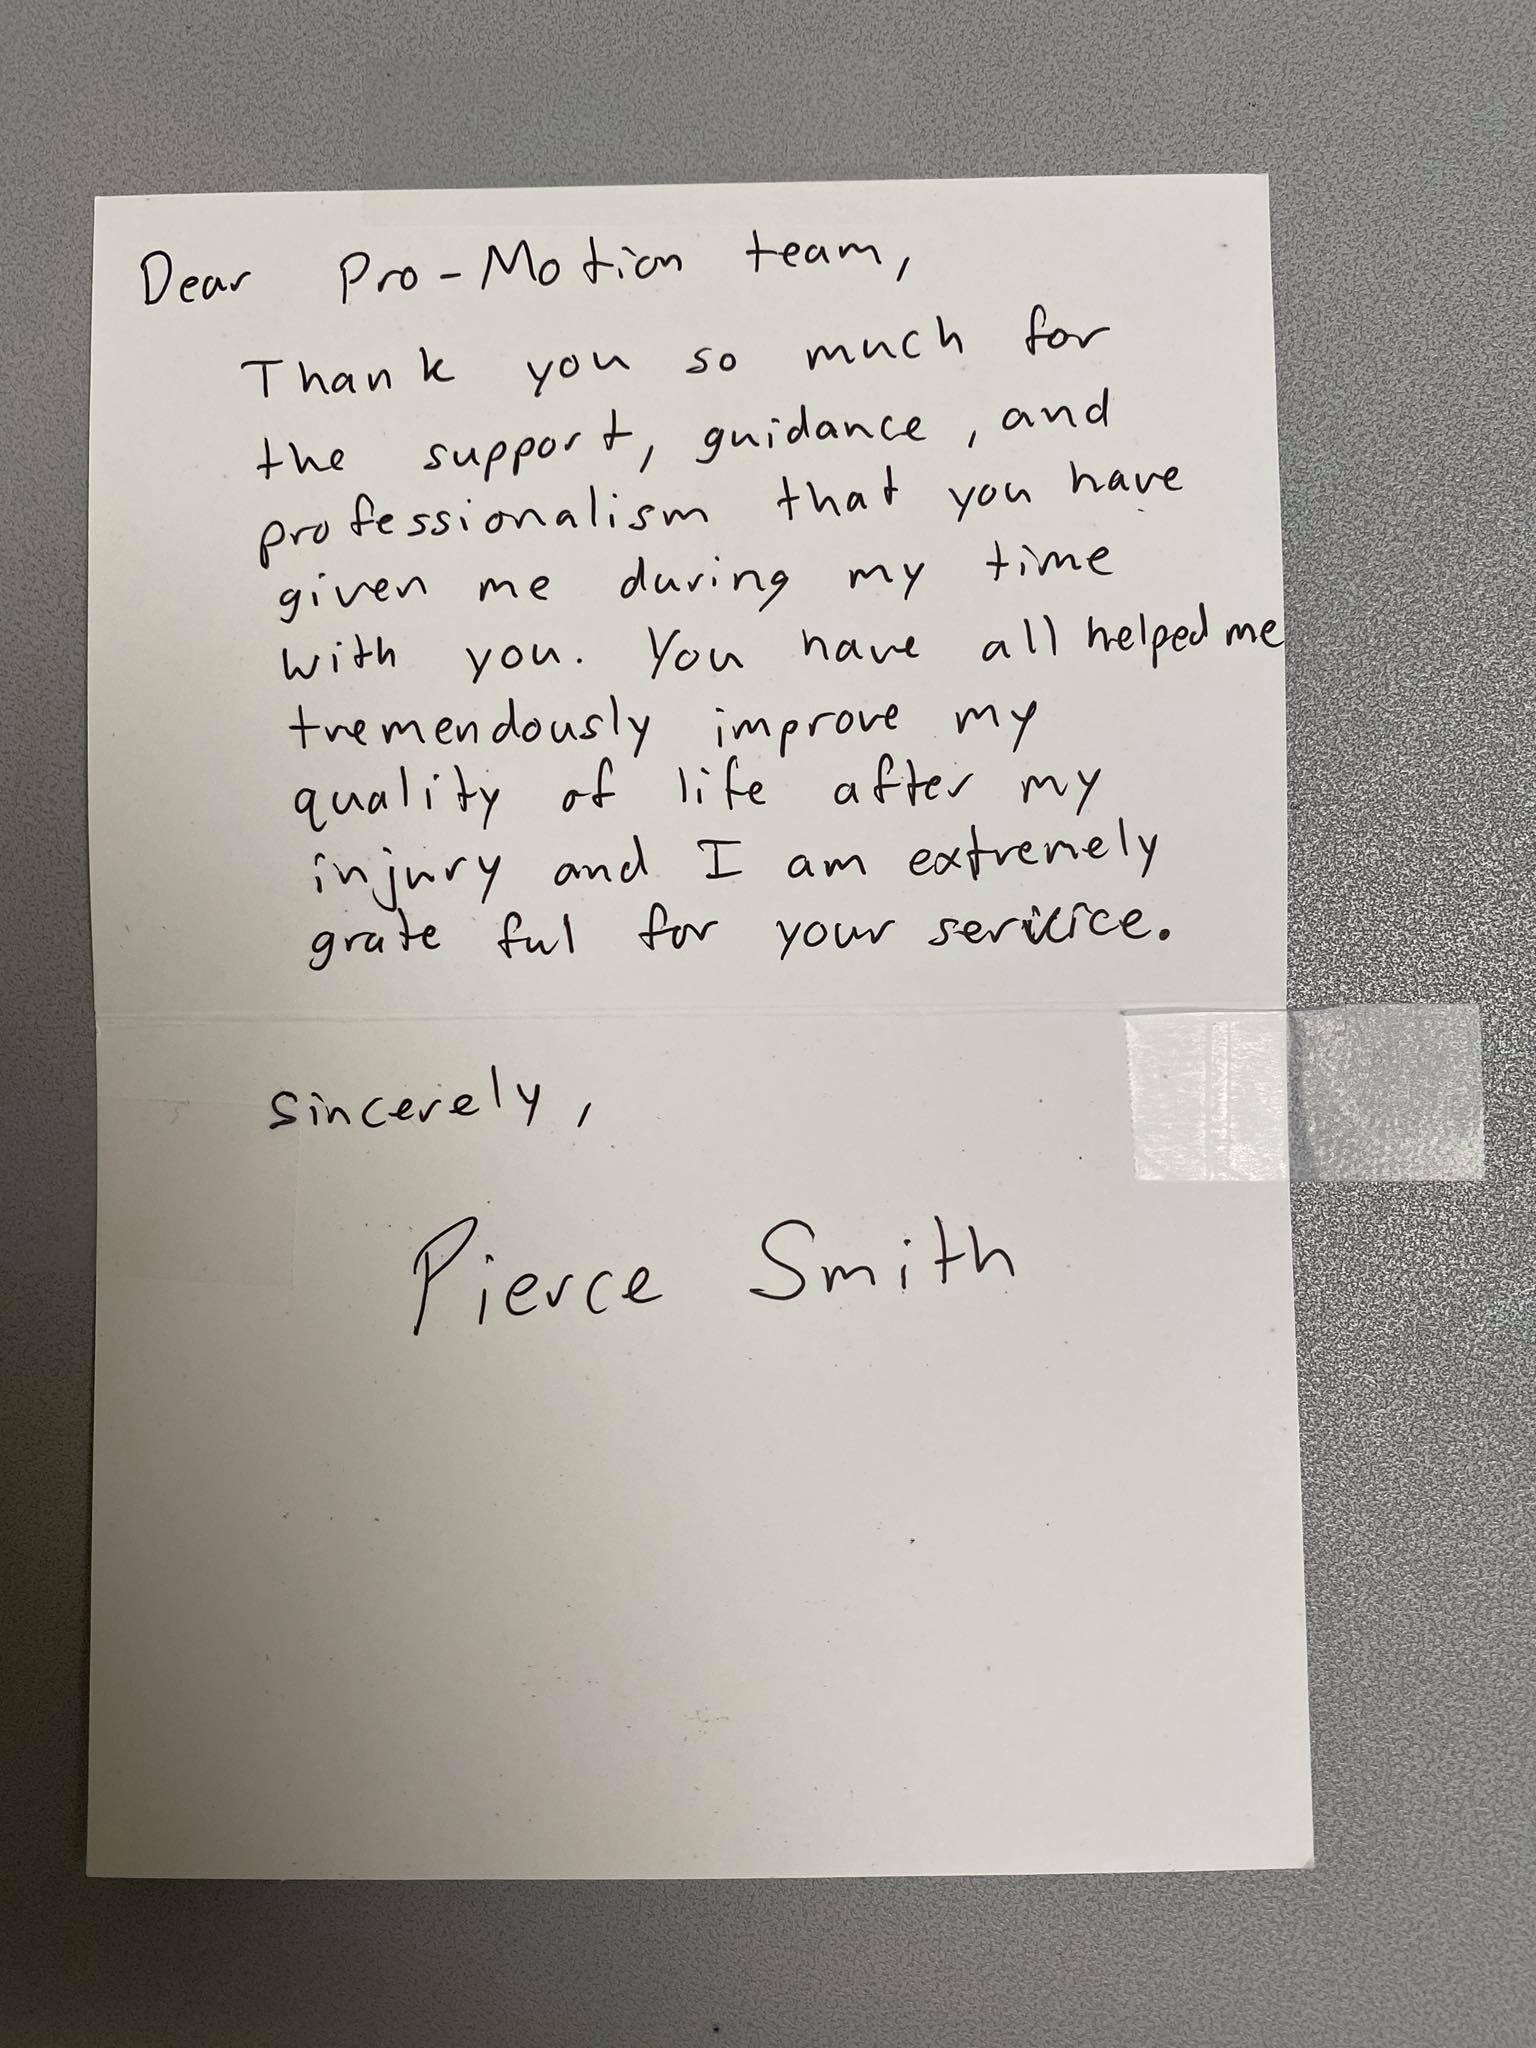 Dear Pro-Motion team,
Thank you so much for
the support, guidance, and
professionalism that you have
given me during my time
with you. You have all helped me
tremendously improve my
quality of life after my
injury and I am extremely
grateful for your service.
Sincerely,
Pierce Smith